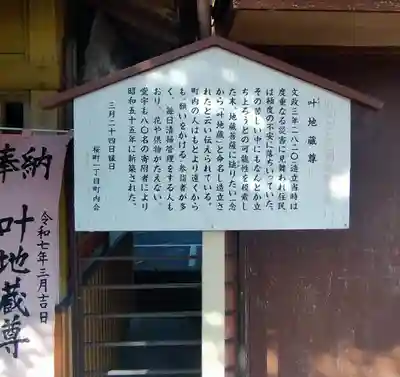 叶地蔵尊
文政三年(一八二〇)造立当時は
度重なる災害に見舞われ住民
は極度の不安に落ちいっていた。
その苦しい中にもなんとか立
ち上ろうとの可能性を模索し
た末、地蔵菩薩に縋りたい一念
から「叶地蔵」と命名し造立さ
れたと云い伝えられている。
町内の人はもとより遠くから
も願いをかける参詣者が多
く、毎日清掃管理をする人も
おり、花や供物がたえない。
愛宇も八〇名の寄附者により
昭和五十五年に新築された。
三月二十四日縁日
桜町一丁目町内会
奉納
叶地蔵尊
令和七年三月吉日